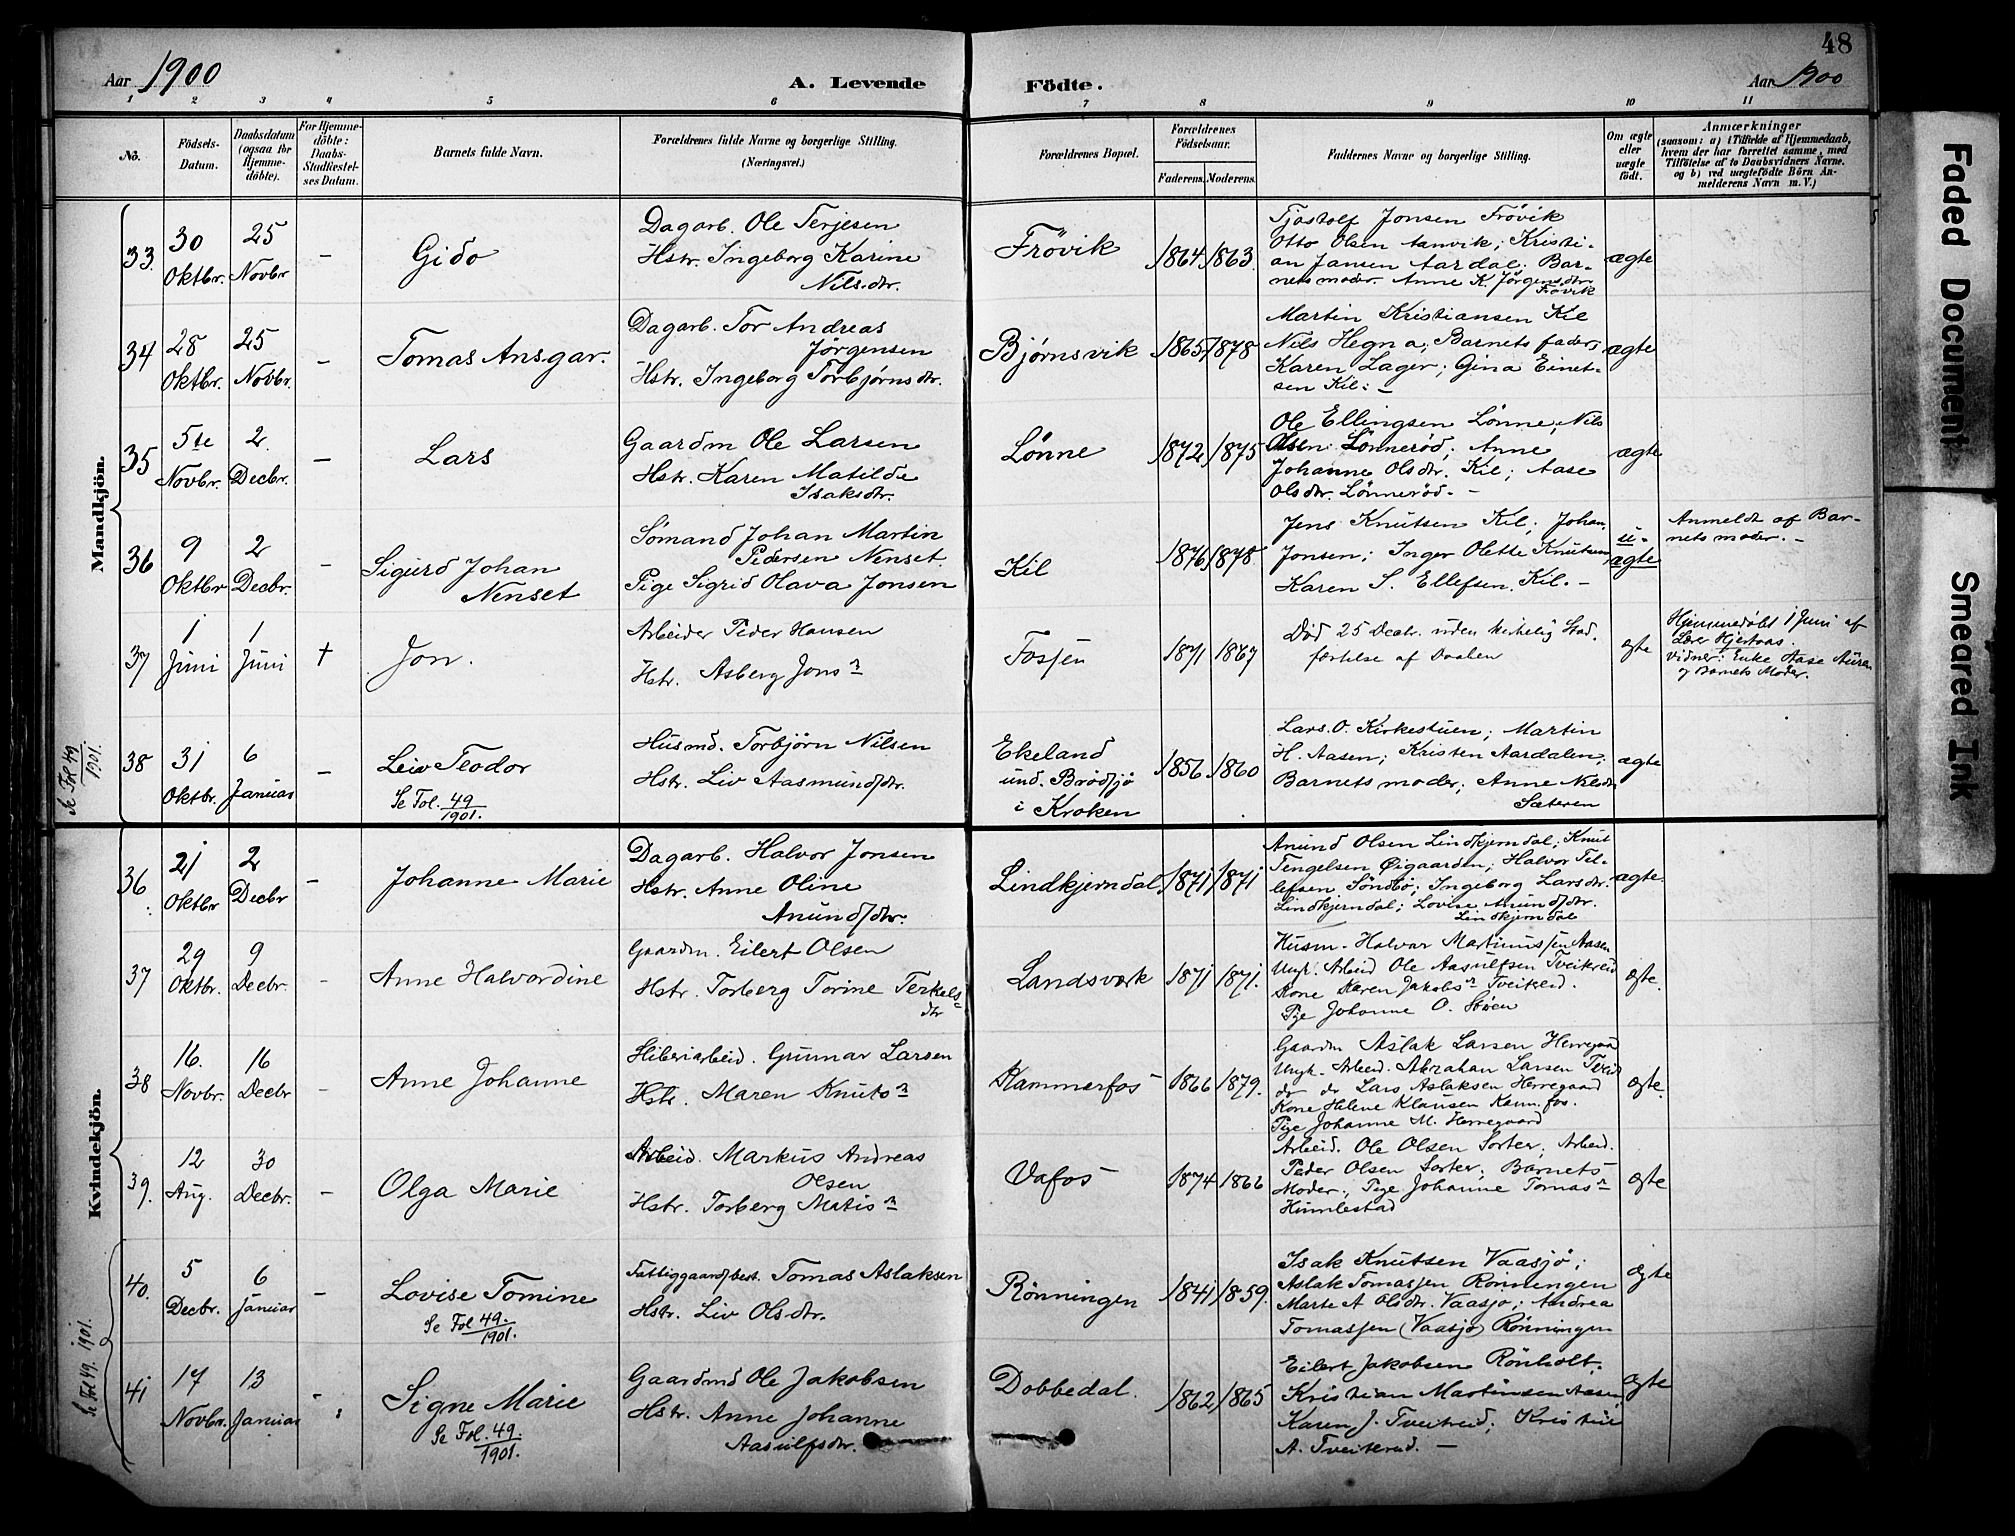 48
Aar 1900
A. Levende
Födte.
Aar 1900
1 2 3 4 5 6 7 8 9 10 11
No.
Födsels-
Datum.
Daabsdatum
(ogsaa for
Hjemme-
döbte).
For Hjemme-
döbte:
Daabs-
Stadfæstel-
ses Datum.
Barnets fulde Navn.
Forældrenes fulde Navne og borgerlige Stilling.
(Næringsvei.)
Forældrenes Bopæl.
Forældrenes
Födselsaar.
Faderens. Moderens.
Faddernes Navne og borgerlige Stilling.
Om ægte
eller
uægte
födt.
Anmærkninger
(saasom: a) i Tilfælde af Hjemmedaab,
hvem der har forrettet samme, med
Tilföielse af to Daabsvidners Navne.
og b) ved uægtefödte Börn An-
melderens Navn m. V.)
Mandkjön.
33.
30
Oktbr.
25
Novbr
-
Gido
Dagarb. Ole Terjesen
Hstr. Ingeborg Karine
Nilsdtr.
Frövik
1864 1863.
Tjostolf Jonsen Frövik
Otto Olsen Aanvik; Kristi-
an Jansen Aardal. Bar-
netsmoder. Anne K. Jörgensdtr.
Frövik
ægte
34
28
Oktbr.
25
Novbr.
-
Tomas Ansgar.
Dagarb. Tor Andreas
Jörgensen
Hstr. Ingeborg Torbjørnsdtr.
Bjørnsvik
1865 1878
Martin Kristiansen Kil
Nils Hegna; Barnets fader;
Karen Lager; Gina Einet-
sen Kil: -
ægte
35
5te
Novbr.
2
Decbr.
-
Lars
Gaardm Ole Larsen
Hstr. Karen Matilde
Isaksdtr.
Lønne
1872 1875
Ole Ellingsen Lønne, Nils
Olsen Lönnerød; Anne
Johanne Olsdtr. Kil; Aase
Olsdtr. Lönnerød. -
ægte
36
9
Oktbr
2
Decbr.
-
Sigurd Johan
Nenset
Sømand Johan Martin
Pedersen Nenset
Pige Sigrid Olava Jonsen
Kil
1876 1878
Jens Knutsen Kil; Johan
Jonsen; Inger Olette Knutsen
Karen S. Ellefsen Kil. -
u-
ægte
Anmeldt af Bar-
nets moder. -
37
1
Juni
1
Juni
+
Jon.
Arbeider Peder Hansen
Hstr. Asberg Jons
Fossen
1871 1867
Död 25 Decbr. uden kirkelig Stad-
fæstelse af Daaben
ægte
Hjemmedöbt 1 Juni af
Lær Kjertaas.
Vidner: Enke Aase
og Barnets Moder.
Se Fol 49
1901.
38
31
Oktbr.
6
Januar
-
Leiv Teodor
Se Fol. 49
1901.
Husmd. Torbjörn Nilsen
Hstr. Liv Aasmundsdtr.
Ekeland
und. Brödsjö
i Kroken
1856 1860
Lars O. Kirkestuen; Martin
H. Aasen; Kristen Aardalen;
Barnets moder; Anne Nilsdtr
Sæteren
ægte
Kvindekjön.
36
21
Oktbr
2
Decbr
-
Johanne Marie
Dagarb. Halvor Jonsen
Hstr. Anne Oline
Anundsdtr.
Lindkjerndal
1871 1871
Anund Olsen Lindkjerndal; Knut
Tengelsen Øigaarden; Halvor Til-
lefsen Söndbö; Ingeborg Larsdtr.
Lindkjerndal; Lovise Anundsdtr.
Lindkjerndal
ægte.
37
29
Oktbr.
9
Decbr.
-
Anne Halvordine
Gaardm. Eilert Olsen
Hstr. Torberg Torine Terkels-
dtr
Landsverk
1871 1871.
Husm. Halvor Martinussen Aasen
Ungk. Arbeid Ole Aasulfsen Tveitreid
Kone Karen Jakobs Tveitreid.
Pige Johanne O. Støen
ægte.
38
16.
Novbr.
16
Decbr
Anne Johanne
Sliberiarbeid. Gunnar Larsen
Hstr. Maren Knuts
Kammerfos
1866 1879.
Gaardm Aslak Larsen Herregaard
Ungk. Arbeid. Abrahan Larsen Tveit
do do Lars Aslaksen Herregaard
Kone Helene Klausen Kam.fos.
Pige Johanne M. Herregaard
ægte.
39.
12
Aug.
30
Decbr.
-
Olga Marie
Arbeid. Markus Andreas
Olsen
Hstr. Torberg Matis
Vafos
1874 1866
Arbeid. Ole Olsen Sorter, Arbeid.
Peder Olsen Sorter; Barnets
Moder; Pige Johanne Tomas
Humlestad
ægte
Se Fol 49. 1901.
40.
5
Decbr.
6
Januar
-
Lovise Tomine
Se Fol 49.
1901.
Fattiggaardsbest. Tomas Aslaksen
Hstr. Liv Olsdtr.
Rönningen
1841 1859.
Isak Knutsen Vaasjö;
Aslak Tomassen Rönningen
Marte A Olsdtr. Vaasjö; Andrea
Tomassen (Vaasjö) Rönningen
ægte
41
17
Novbr.
13
Januar
-
Signe Marie
Se Fol. 49.
1901.
Gaardmd Ole Jakobsen
Hstr. Anne Johanne
Aasulfsdtr.
Dobbedal.
1862 1865
Eilert Jakobsen Rönholt.
Kristian Martinsen Aasen
Karen J. Tveitreid; Kristine
A. Tveitereid. -
ægte
Faded Document
Smeared Ink